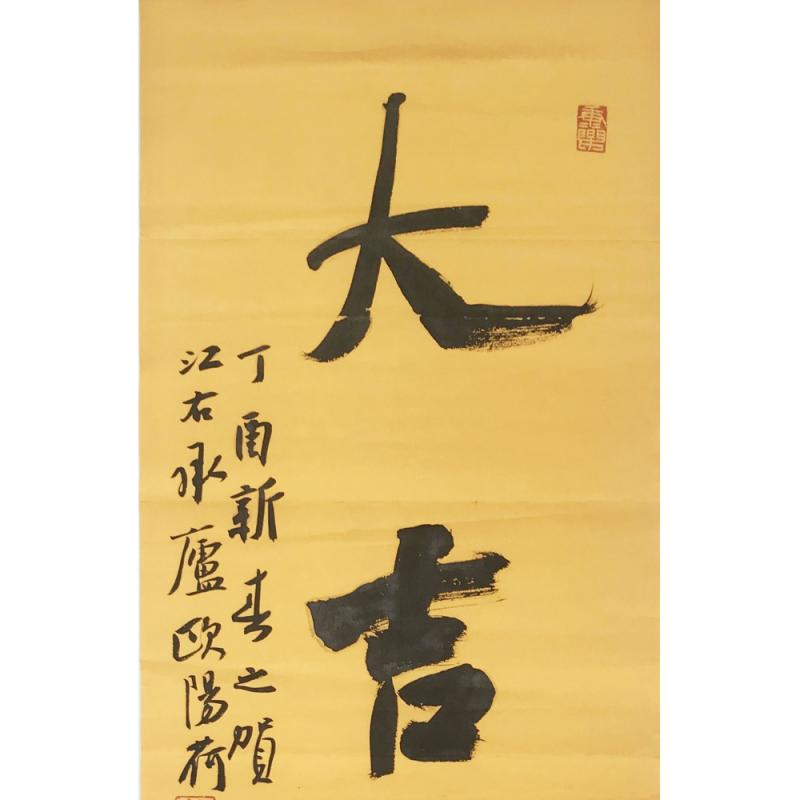 大吉
丁酉新春之賀
江右承廬歐陽荷